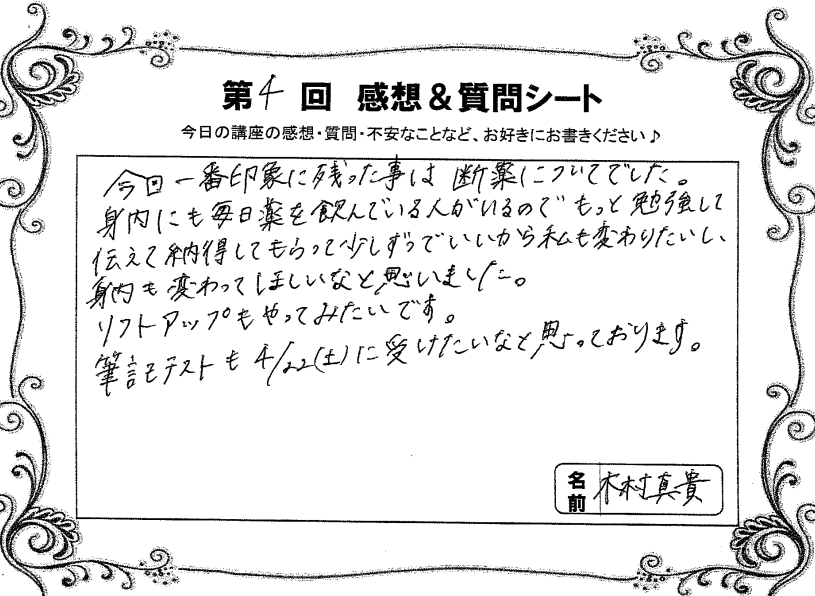 第4回 感想&質問シート
今日の講座の感想・質問・不安なことなど、お好きにお書きください♪
今回一番印象に残った事は 断薬についてでした。
身内にも毎日薬を飲んでいる人がいるので もっと勉強して
伝えて納得してもらって少しずつでいいから私も変わりたいし、
身内も変わってほしいなと思いました。
リフトアップもやってみたいです。
筆記テストも 4/22(土)に受けたいなと思っております。
名前 木村真貴